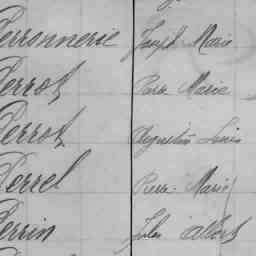 Perronnerie Joseph Marie
Perrot Pierre Marie
Perrot Augustin Louis
Perrel Pierre Marie
Perrin Jules Albert